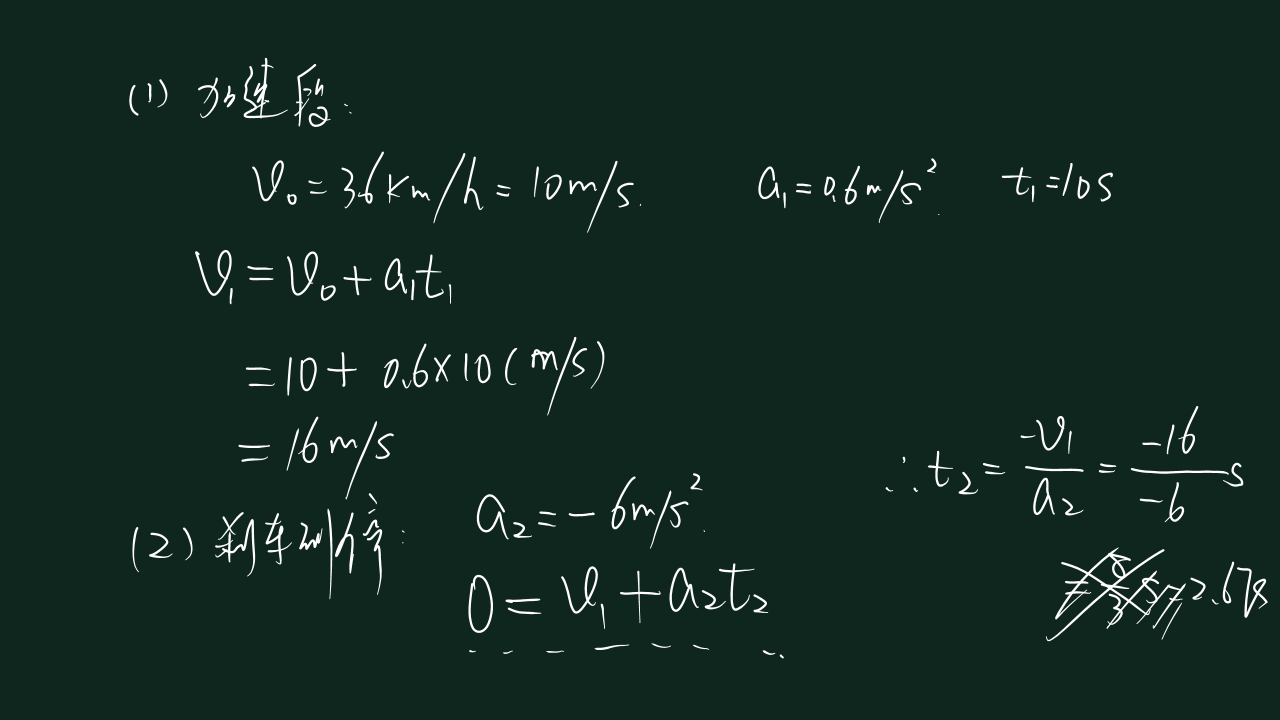 (1) 加速段:
v₀=36km/h=10m/s. a₁=0.6m/s². t₁=10s
v₁=v₀+a₁t₁
=10+0.6×10(m/s)
=16m/s
(2) 刹车到停: a₂=-6m/s².
0=v₁+a₂t₂
∴t₂=-v₁/a₂=-16/-6 s
=2.67s